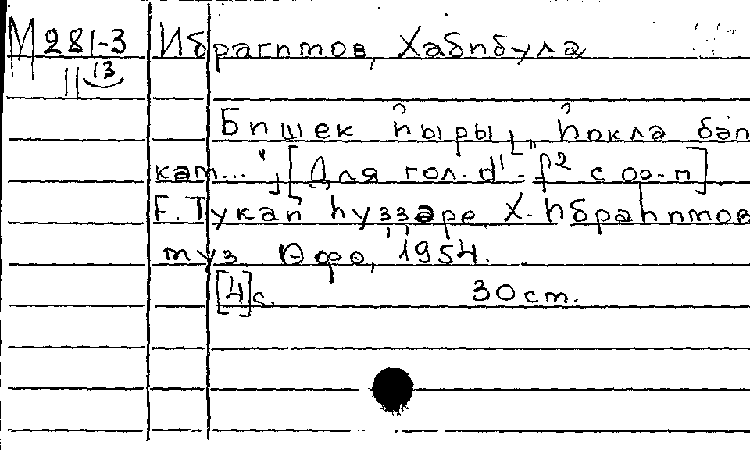 М 281-3 Ибрагимов, Хабибула
13
Бишек йыры [„Йокла бәп
кәм... “] [Для гол. d¹ - f² с ф-п]
Ғ. Туҡай һүҙҙәре, Х. Ибраһимов
муз. Өфө, 1954.
[4] с. 30 см.